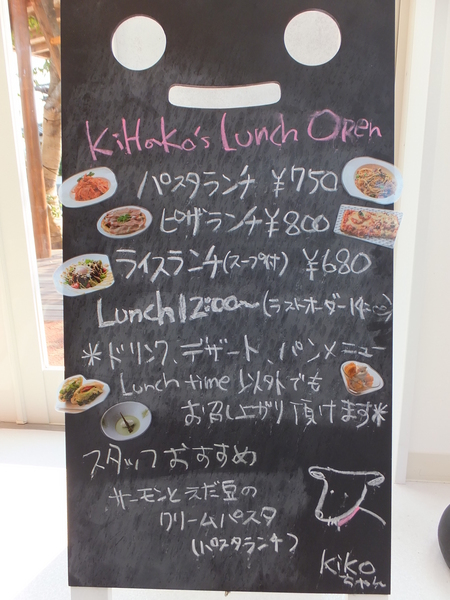 KiHaKo's Lunch Open
パスタランチ ¥750
ピザランチ ¥800
ライスランチ(スープ付) ¥680
Lunch 12:00~(ラストオーダー14:
*ドリンク、デザート、パンメニュー
Lunch time 以外でも
お召し上がり頂けます*
スタッフおすすめ
サーモンとえだ豆の
クリームパスタ
(パスタランチ)
KiKo
ちゃん